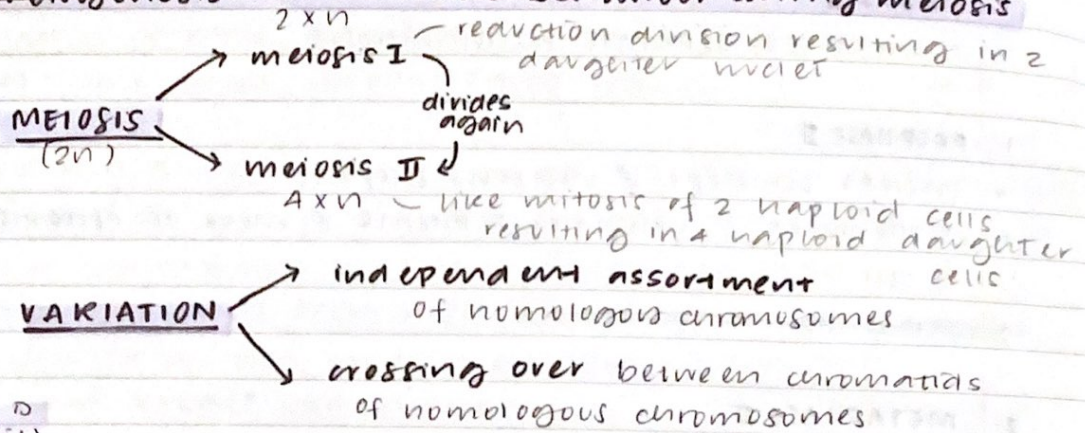 meiosis
2 × n
meiosis I
reduction division resulting in 2
daughter nuclei
divides
again
MEIOSIS
(2n)
meiosis II
4 × n
like mitosis of 2 haploid cells
resulting in 4 haploid daughter
cells
independent assortment
of homologous chromosomes
VARIATION
crossing over between chromatids
of homologous chromosomes